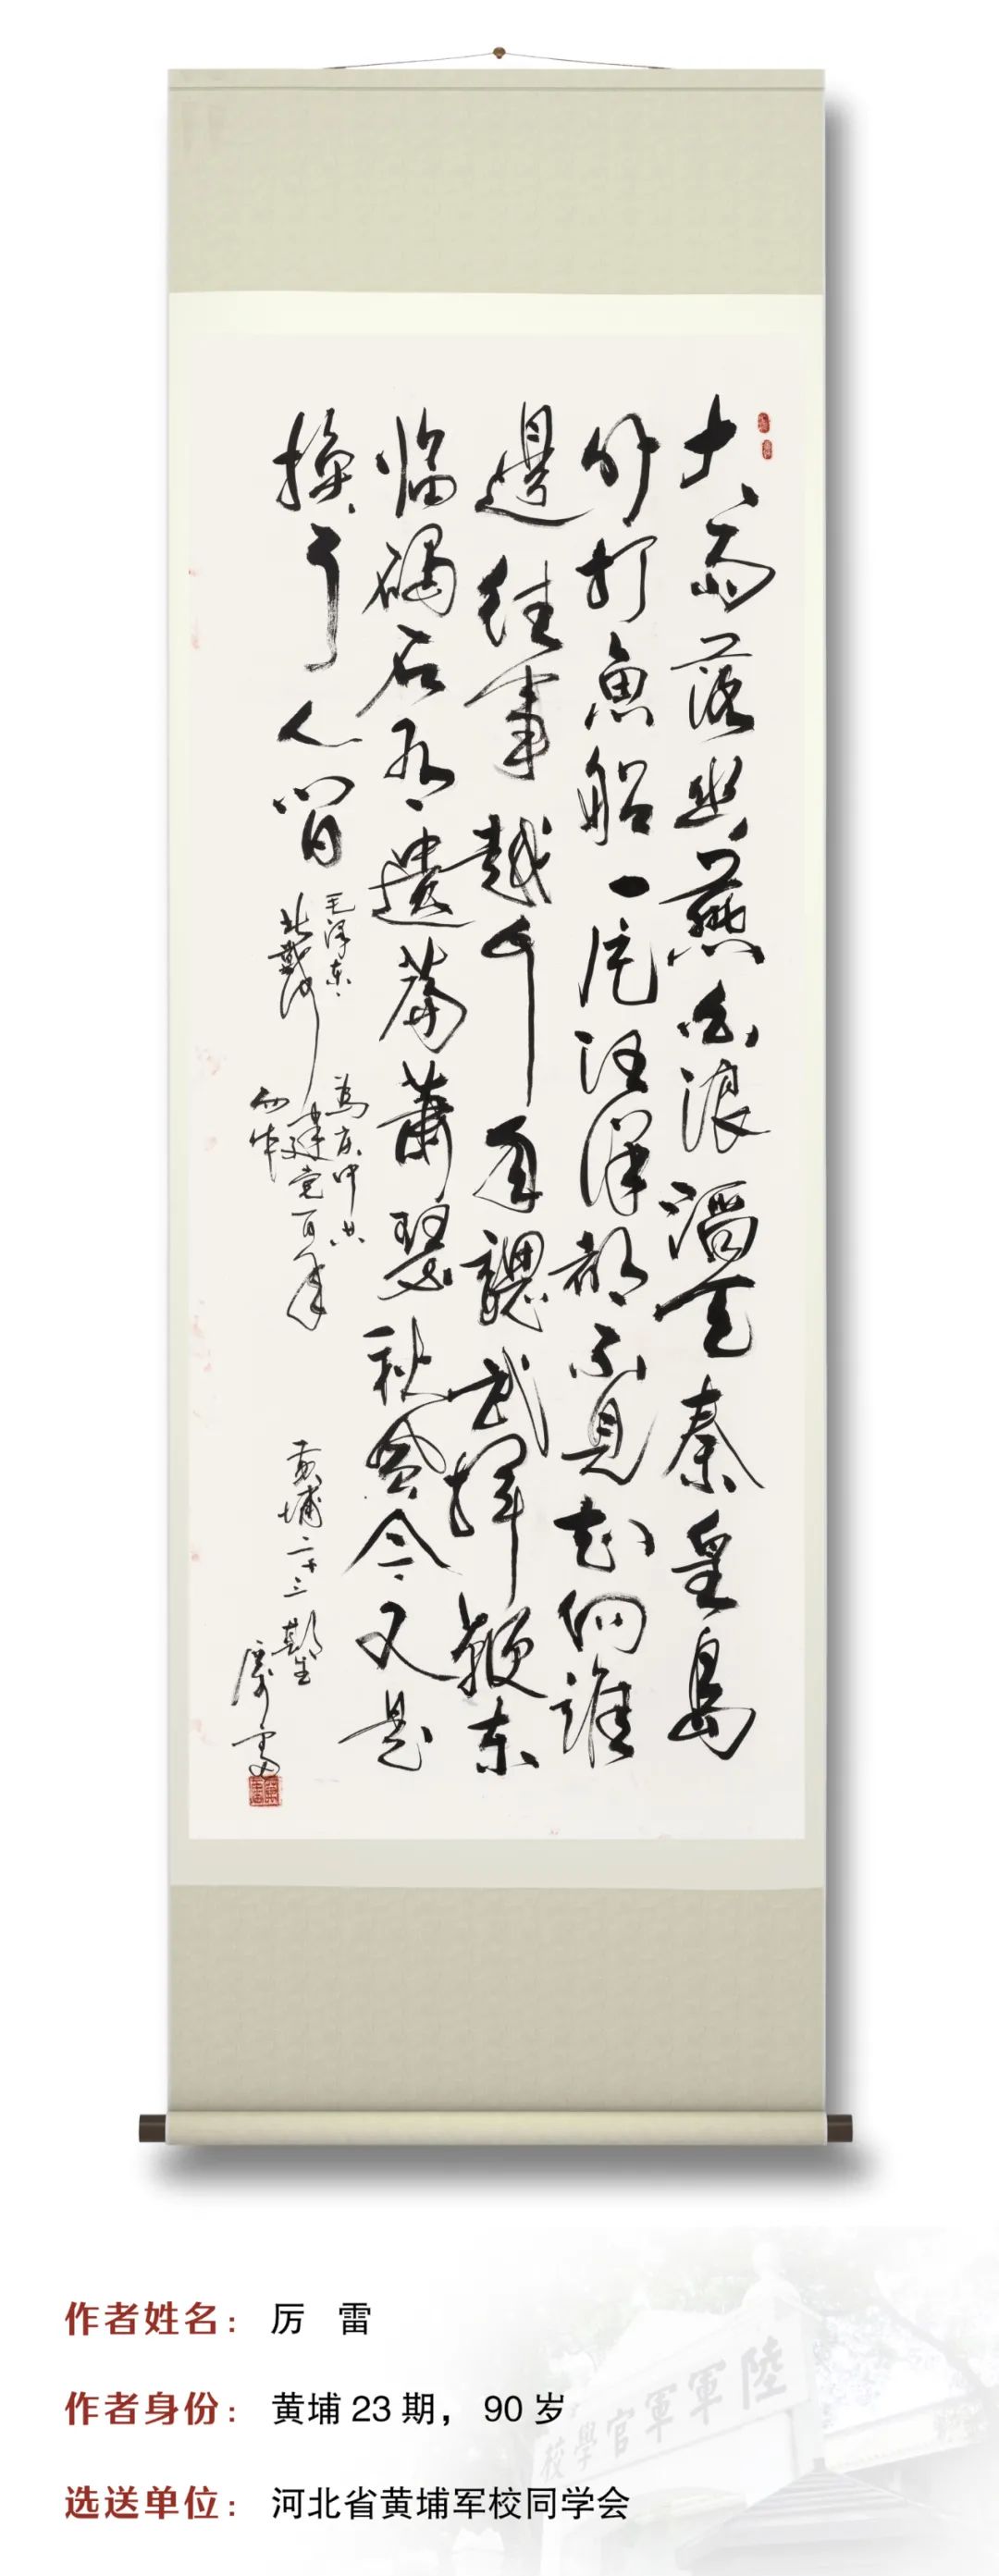 大雨落幽燕白浪滔天秦皇島
外打魚船一片汪洋都不見知向誰
邊往事越千年魏武揮鞭东
临碣石有遺篇蕭瑟秋风今又是
换了人间
毛泽东
北戴河
為庆中共
建党百年
而作
黄埔二十三期生
厉雷
作者姓名： 厉 雷
作者身份： 黄埔 23 期， 90 岁
选送单位： 河北省黄埔军校同学会
陸軍軍官學校